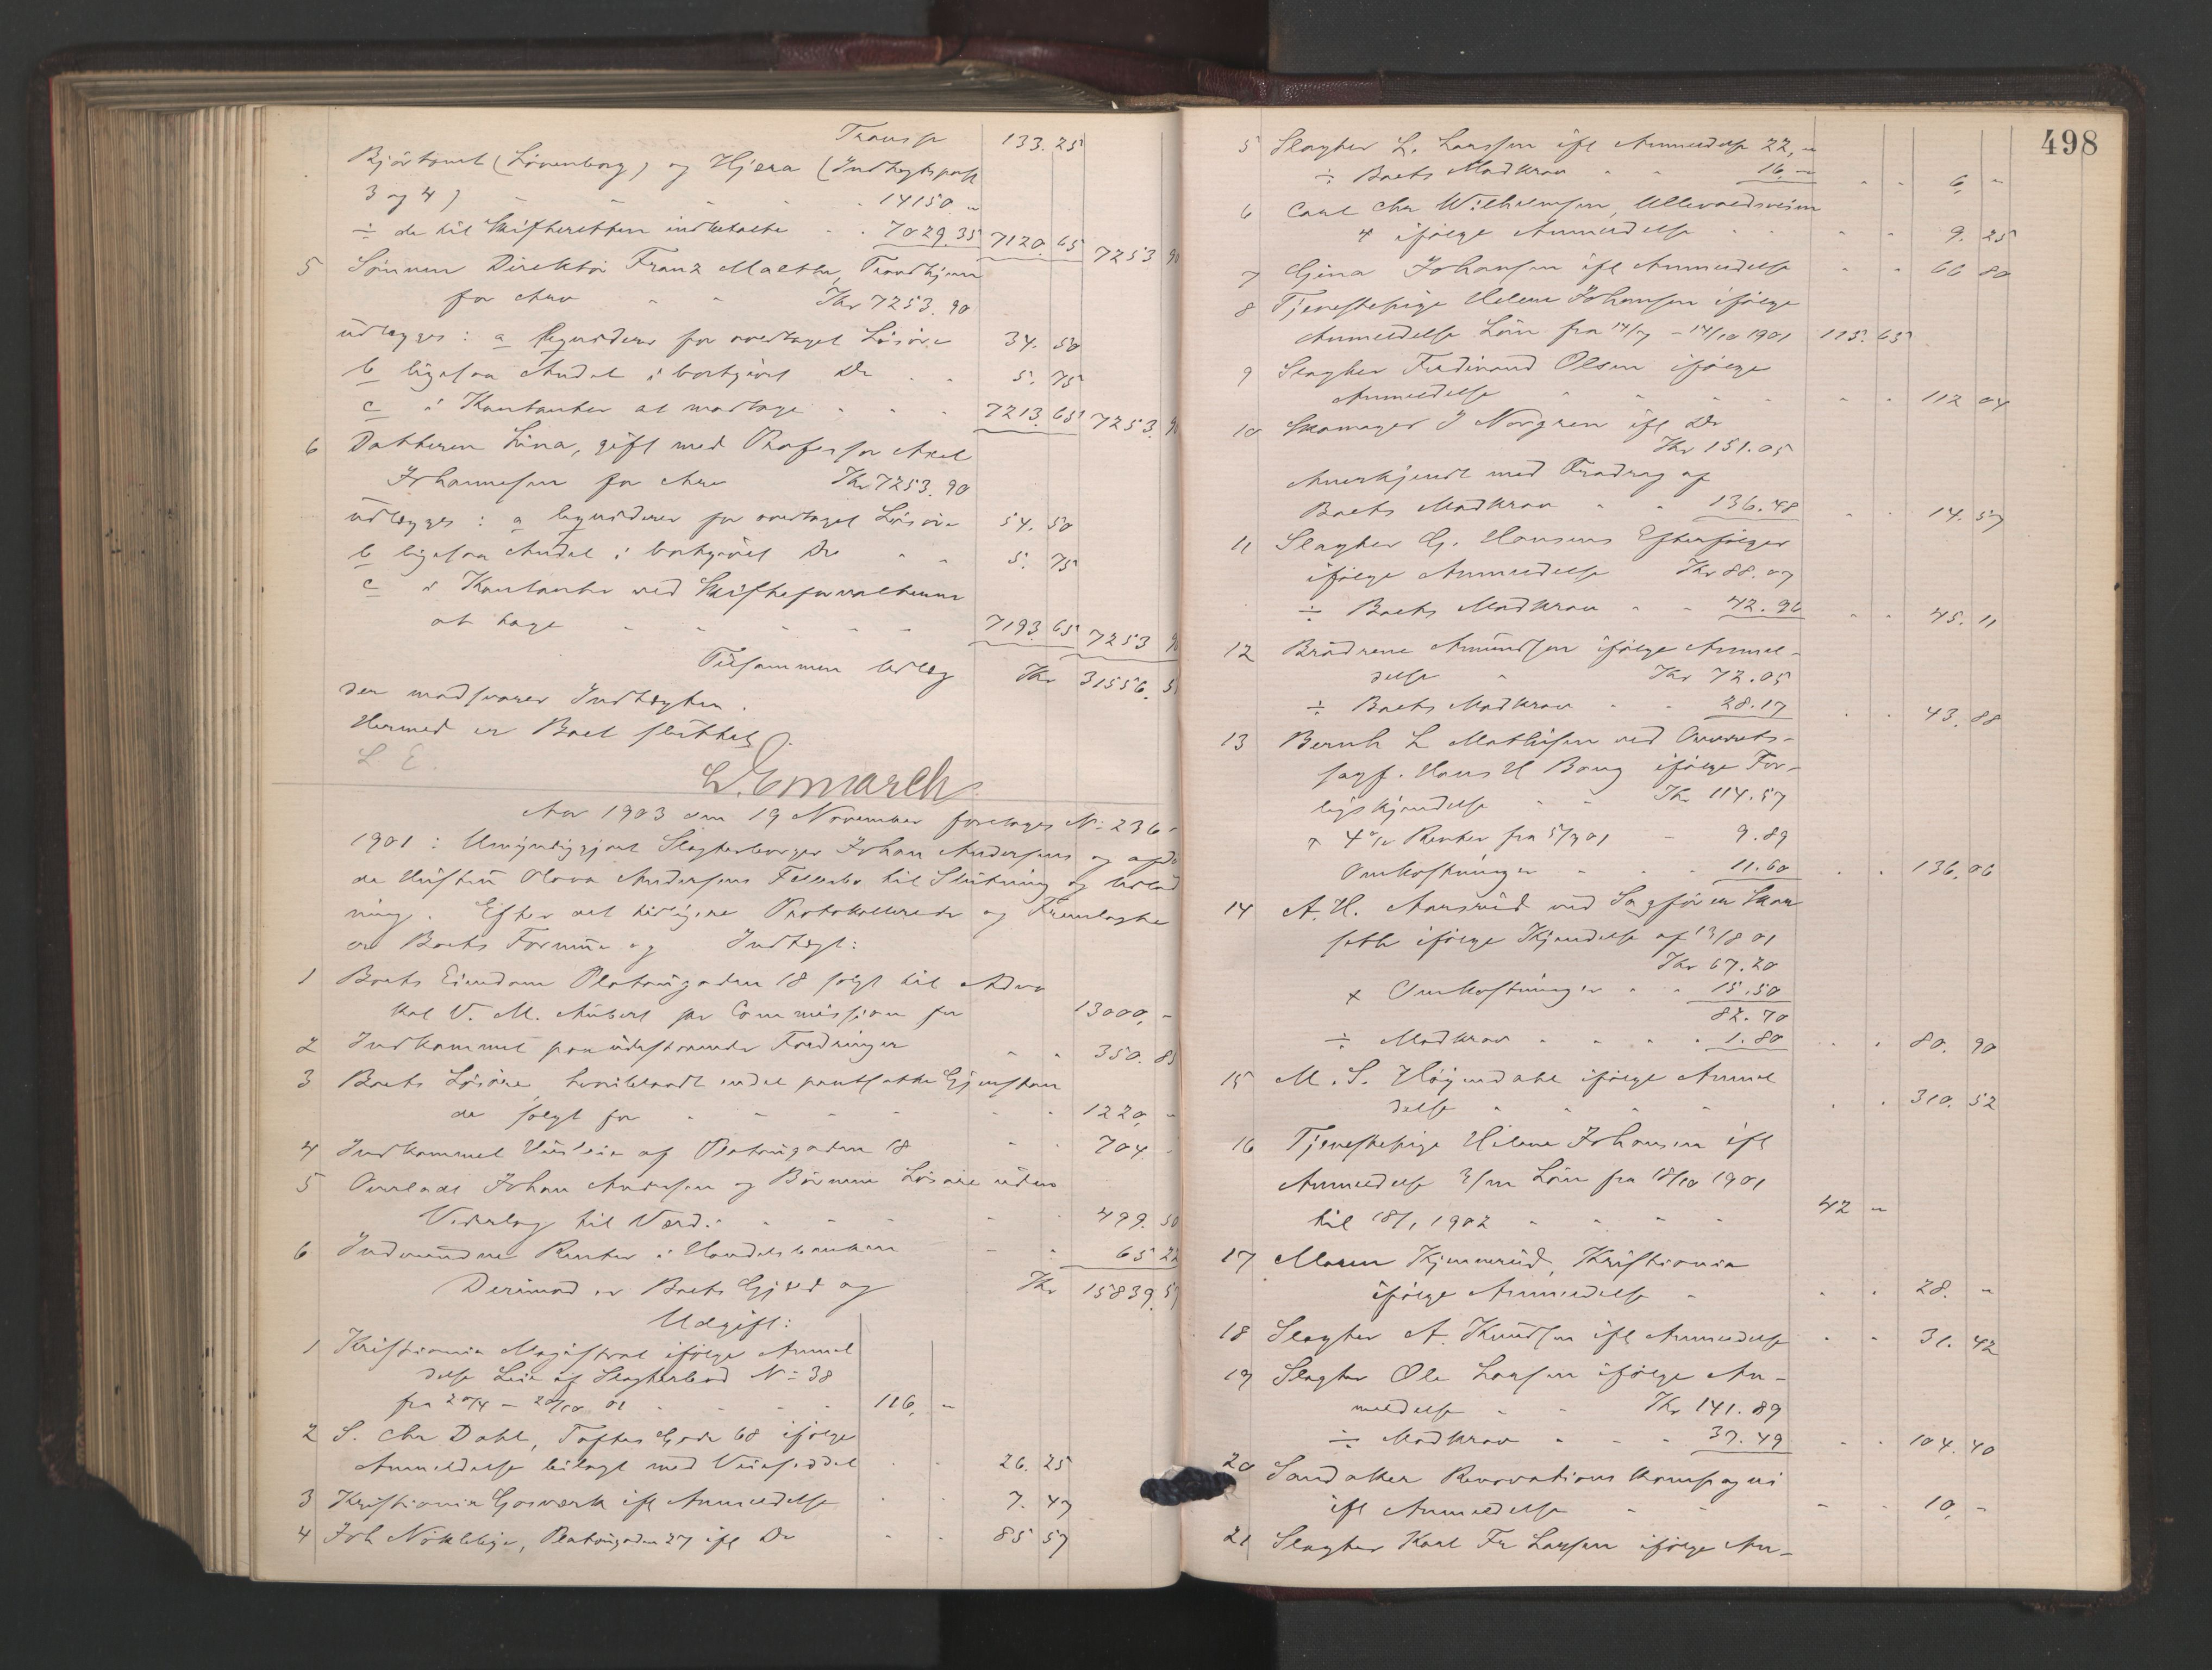 Transp 133. 25
Björtomt (Lövenborg) og Hjøra (Indtægtspost
3 og 4) 14150 "
÷ de til Skifteretten indbetalte 7029.35 7120. 65 7253 90
5 Sönnen Direktör Franz Malthe, Trondhjem
for Arv Kr 7253. 90
udlægges: a Liqviderer for overtaget Lösöre 34. 50
b ligesaa Andel i bortgivet Do 5. 75
c i Kontanter at modtage 7213. 65 7253. 90
6 Datteren Lina, gift med Professor Axel
Johannesen for Arv Kr 7253. 90
udlægges: a liqviderer for overtaget Lösöre 54. 50
b ligesaa Andel i bortgivet Do 5. 75
c i Kontanter ved Skifteforvalteren
at hæve 7193. 65 7253 90
Tilsammen Udlæg Kr 31556. 5
der modsvarer Indtægten.
Hermed er Boet sluttet.
L E.
L. Esmarch
Aar 1903 den 19 November foretoges No 236-
1901: Umyndiggjort Slagterborger Johan Andersens og afdö
de Hustru Olava Andersens Fællesbo til Slutning og Udlod
ning. Efter det tidligere Protokollerede og Fremlagte
er Boets Formue og Indtægt:
1 Boets Eiendom Platousgaden 18 solgt til Advo
kat V. M. Aubert per Commission for 13000, -
2 Indkommet paa udestaaende Fordringer 350. 85
3 Boets Lösöre, hvoriblandt endel pantsatte Gjenstan
de solgt for 1220, -
4 Indkommet Husleie af Platousgaden 18 704 -
5 Overladt Johan Andersen og Börnene Lösöre uden
Vederlag til Værdi 499. 50
6 Indvundne Renter i Handelsbanken 65 22
Derimod er Boets Gjæld og Kr 15839. 57
Udgift:
1 Kristiania Magistrat ifölge Anmel
delse Leie af Slagterbod No 38
fra 20/4 - 20/10 01 116, -
2 S. Chr Dahl, Toftes Gade 68 ifölge
Anmeldelse bilagt med Veieseddel 26. 25
3 Kristiania Gasværk ifl Anmeldelse 7. 47
4 Joh Nökleby, Platousgaden 27 ifl Do 85 57
498
5 Slagter L. Larssen ifl Anmeldelse 22, "
÷ Boets Modkrav 16, " 6, "
6 Carl Chr Wilhelmsen, Ullevoldsveien
4 ifölge Anmeldelse 9. 25
7 Gina Johansen ifl Anmeldelse 66 80
8 Tjenestepige Helene Johansen ifölge
Anmeldelse Lön fra 14/7 - 14/10 1901 115. 65
9 Slagter Ferdinand Olsen ifölge
Anmeldelse 112 04
10 Skomager J Norgren ifl Do
Kr 151.05
Anerkjendt med Fradrag af
Boets Modkrav 136.48 14. 57
11 Slagter G. Hansens Efterfölger
ifölge Anmeldelse Kr 88.07
÷ Boets Modkrav 42.96 45. 11
12 Brödrene Amundsen ifölge Anmel-
delse Kr 72.05
÷ Boets Modkrav 28.17 43. 88
13 Bernh L Mathisen ved Overrets-
sagf. Hans H Bang ifölge For-
ligskjendelse Kr 114.57
+ 4% Renter fra 5/9 01 9.89
Omkostninger 11.60 136. 06
14 A. H. Aarsrud ved Sagförer Skar
seth ifölge Kjendelse af 13/8 01
Kr 67.20
+ Omkostninger 15.50
82.70
÷ Modkrav 1.80 80. 90
15 M. S. Höyendahl ifölge Anmel
delse 310. 52
16 Tjenestepige Helene Johansen ifl
Anmeldelse 3/m Lön fra 18/10 1901
til 18/1 1902 42 "
17 Maren Kjennerud, Kristiania
ifölge Anmeldelse 28. "
18 Slagter A. Knudsen ifl Anmeldelse 31. 42
19 Slagter Ole Larsen ifölge An-
meldelse Kr 141.89
÷ Modkrav 37.49 104. 40
20 Sandaker Renovations Kompagni
ifl Anmeldelse 10, -
21 Slagter Karl Fr Larssen ifölge An-